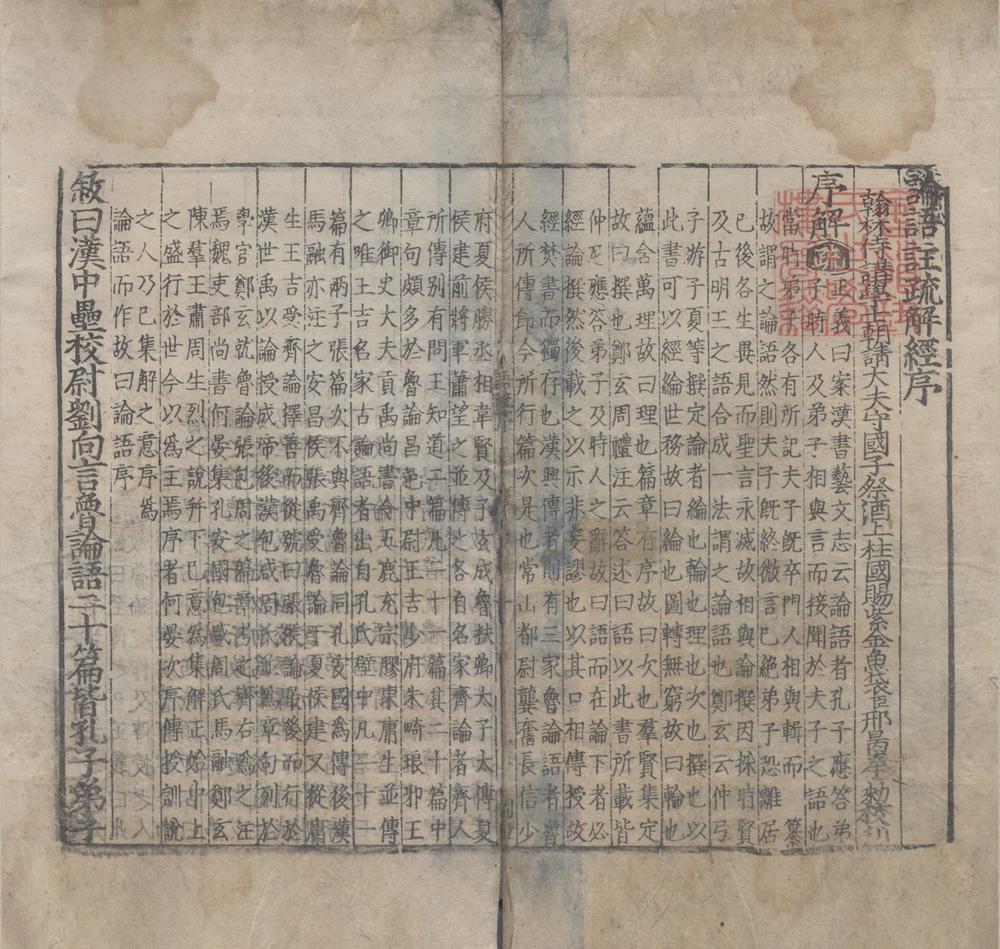 論語註疏解經序
翰林侍講學士朝請大夫守國子祭酒上柱國賜紫金魚袋臣邢昺奉勑校
序解疏正義曰案漢書藝文志云論語者孔子應答弟
子時人及弟子相與言而接聞於夫子之語也
當時弟子各有所記夫子既卒門人相與輯而論纂
故謂之論語然則夫子既終微言已絕弟子恐離居
已後各生異見而聖言永滅故相與論撰因採時賢
及古明王之語合成一法謂之論語也鄭玄云仲弓
子游子夏等撰定論者綸也輪也理也次也撰也以
此書可以經綸世務故曰綸也圓轉無窮故曰輪也
蘊含萬理故曰理也篇章有序故曰次也羣賢集定
故曰撰也鄭玄周禮注云答述曰語以此書所載皆
仲尼應答弟子及時人之辭故曰語而在論下者必
經論撰然後載之以示非妄謬也以其口相傳授故
經焚書而獨存也漢興傳者則有三家魯論語者魯
人所傳即今所行篇次是也常山都尉龔奮長信少
府夏侯勝丞相韋賢及子玄成魯扶卿太子太傅夏
侯建前將軍蕭望之並傳之各自名家齊論者齊人
所傳別有問王知道二篇凡二十二篇其二十篇中
章句頗多於魯論昌邑中尉王吉少府朱畸琅邪王
卿御史大夫貢禹尚書令五鹿充宗膠東庸生並傳
之唯王吉名家古論語者出自孔氏壁中凡二十一
篇有兩子張篇次不與齊魯論同孔安國爲傳後漢
馬融亦注之安昌侯張禹受魯論于夏侯建又從庸
生王吉受齊論擇善而從號曰張侯論最後而行於
漢世禹以論授成帝後漢包咸周氏並爲章句列於
學官鄭玄就魯論張包周之篇章考之齊古爲之注
焉魏吏部尚書何晏集孔安國包咸周氏馬融鄭玄
陳羣王肅周生烈之說并下己意爲集解正始中上
之盛行於世今以爲主焉序者何晏次序傳授訓說
之人乃己集解之意序爲
論語而作故曰論語序
敘曰漢中壘校尉劉向言魯論語二十篇皆孔子弟子